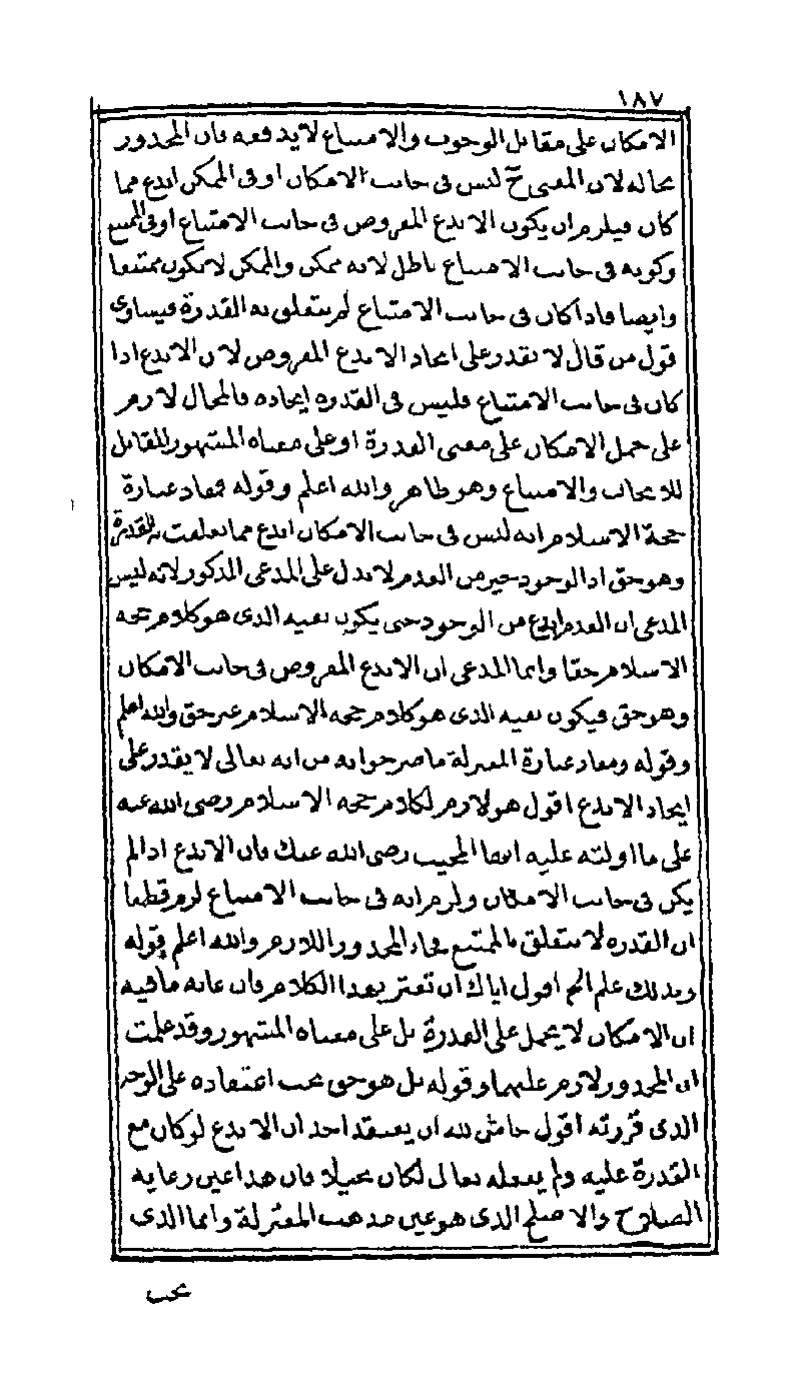 ١٨٧
الامكان على مقابل الوجوب والامتناع لا يدفعه فان المحذور
بحاله لان المعنى ح ليس فى جانب الامكان او فى الممكن ابدع مما
كان فيلزم ان يكون الابدع المفروض فى جانب الامتناع او فى الممتنع
وكونه فى جانب الامتناع باطل لانه ممكن والممكن لا يكون ممتنعا
وايضا فاذا كان فى جانب الامتناع لم يتعلق به القدرة فيساوى
قول من قال لا يقدر على ايجاد الابدع المفروض لان الابدع اذا
كان فى جانب الامتناع فليس فى القدرة ايجاده فالمحال لازم
على حمل الامكان على معنى القدرة او على معناه المشهور المقابل
للايجاب والامتناع وهو ظاهر والله اعلم وقوله فمفاد عبارة
حجة الاسلام انه ليس فى جانب الامكان ابدع مما تعلقت به القدرة
وهو حق اذ الوجود خير من العدم لا يدل على المدعى المذكور لانه ليس
المدعى ان العدم ابدع من الوجود حتى يكون نفيه الذى هو كلام حجة
الاسلام حقا وانما المدعى ان الابدع المفروض فى جانب الامكان
وهو حق فيكون نفيه الذى هو كلام حجة الاسلام غير حق والله اعلم
وقوله ومفاد عبارة المعتزلة ما صرحوا به من انه تعالى لا يقدر على
ايجاد الابدع اقول هو لازم لكلام حجة الاسلام رضى الله عنه
على ما اولته عليه ايها المجيب رضى الله عنك فان الابدع اذا لم
يكن فى جانب الامكان ولزم انه فى جانب الامتناع لزم قطعا
ان القدرة لا تتعلق بالممتنع فجاء المحذور اللازم والله اعلم قوله
وبذلك علم الخ اقول اياك ان تغتر بهذا الكلام فان غاية ما فيه
ان الامكان لا يحمل على القدرة بل على معناه المشهور وقد علمت
ان المحذور لازم عليهما وقوله بل هو حق يجب اعتقاده على الوجه
الذى قررته اقول حاش لله ان يعتقد احد ان الابدع لو كان مع
القدرة عليه ولم يفعله تعالى لكان بخيلا فان هذا عين رعاية
الصلاح والاصلح الذى هو عين مذهب المعتزلة وانما الذى
يجب